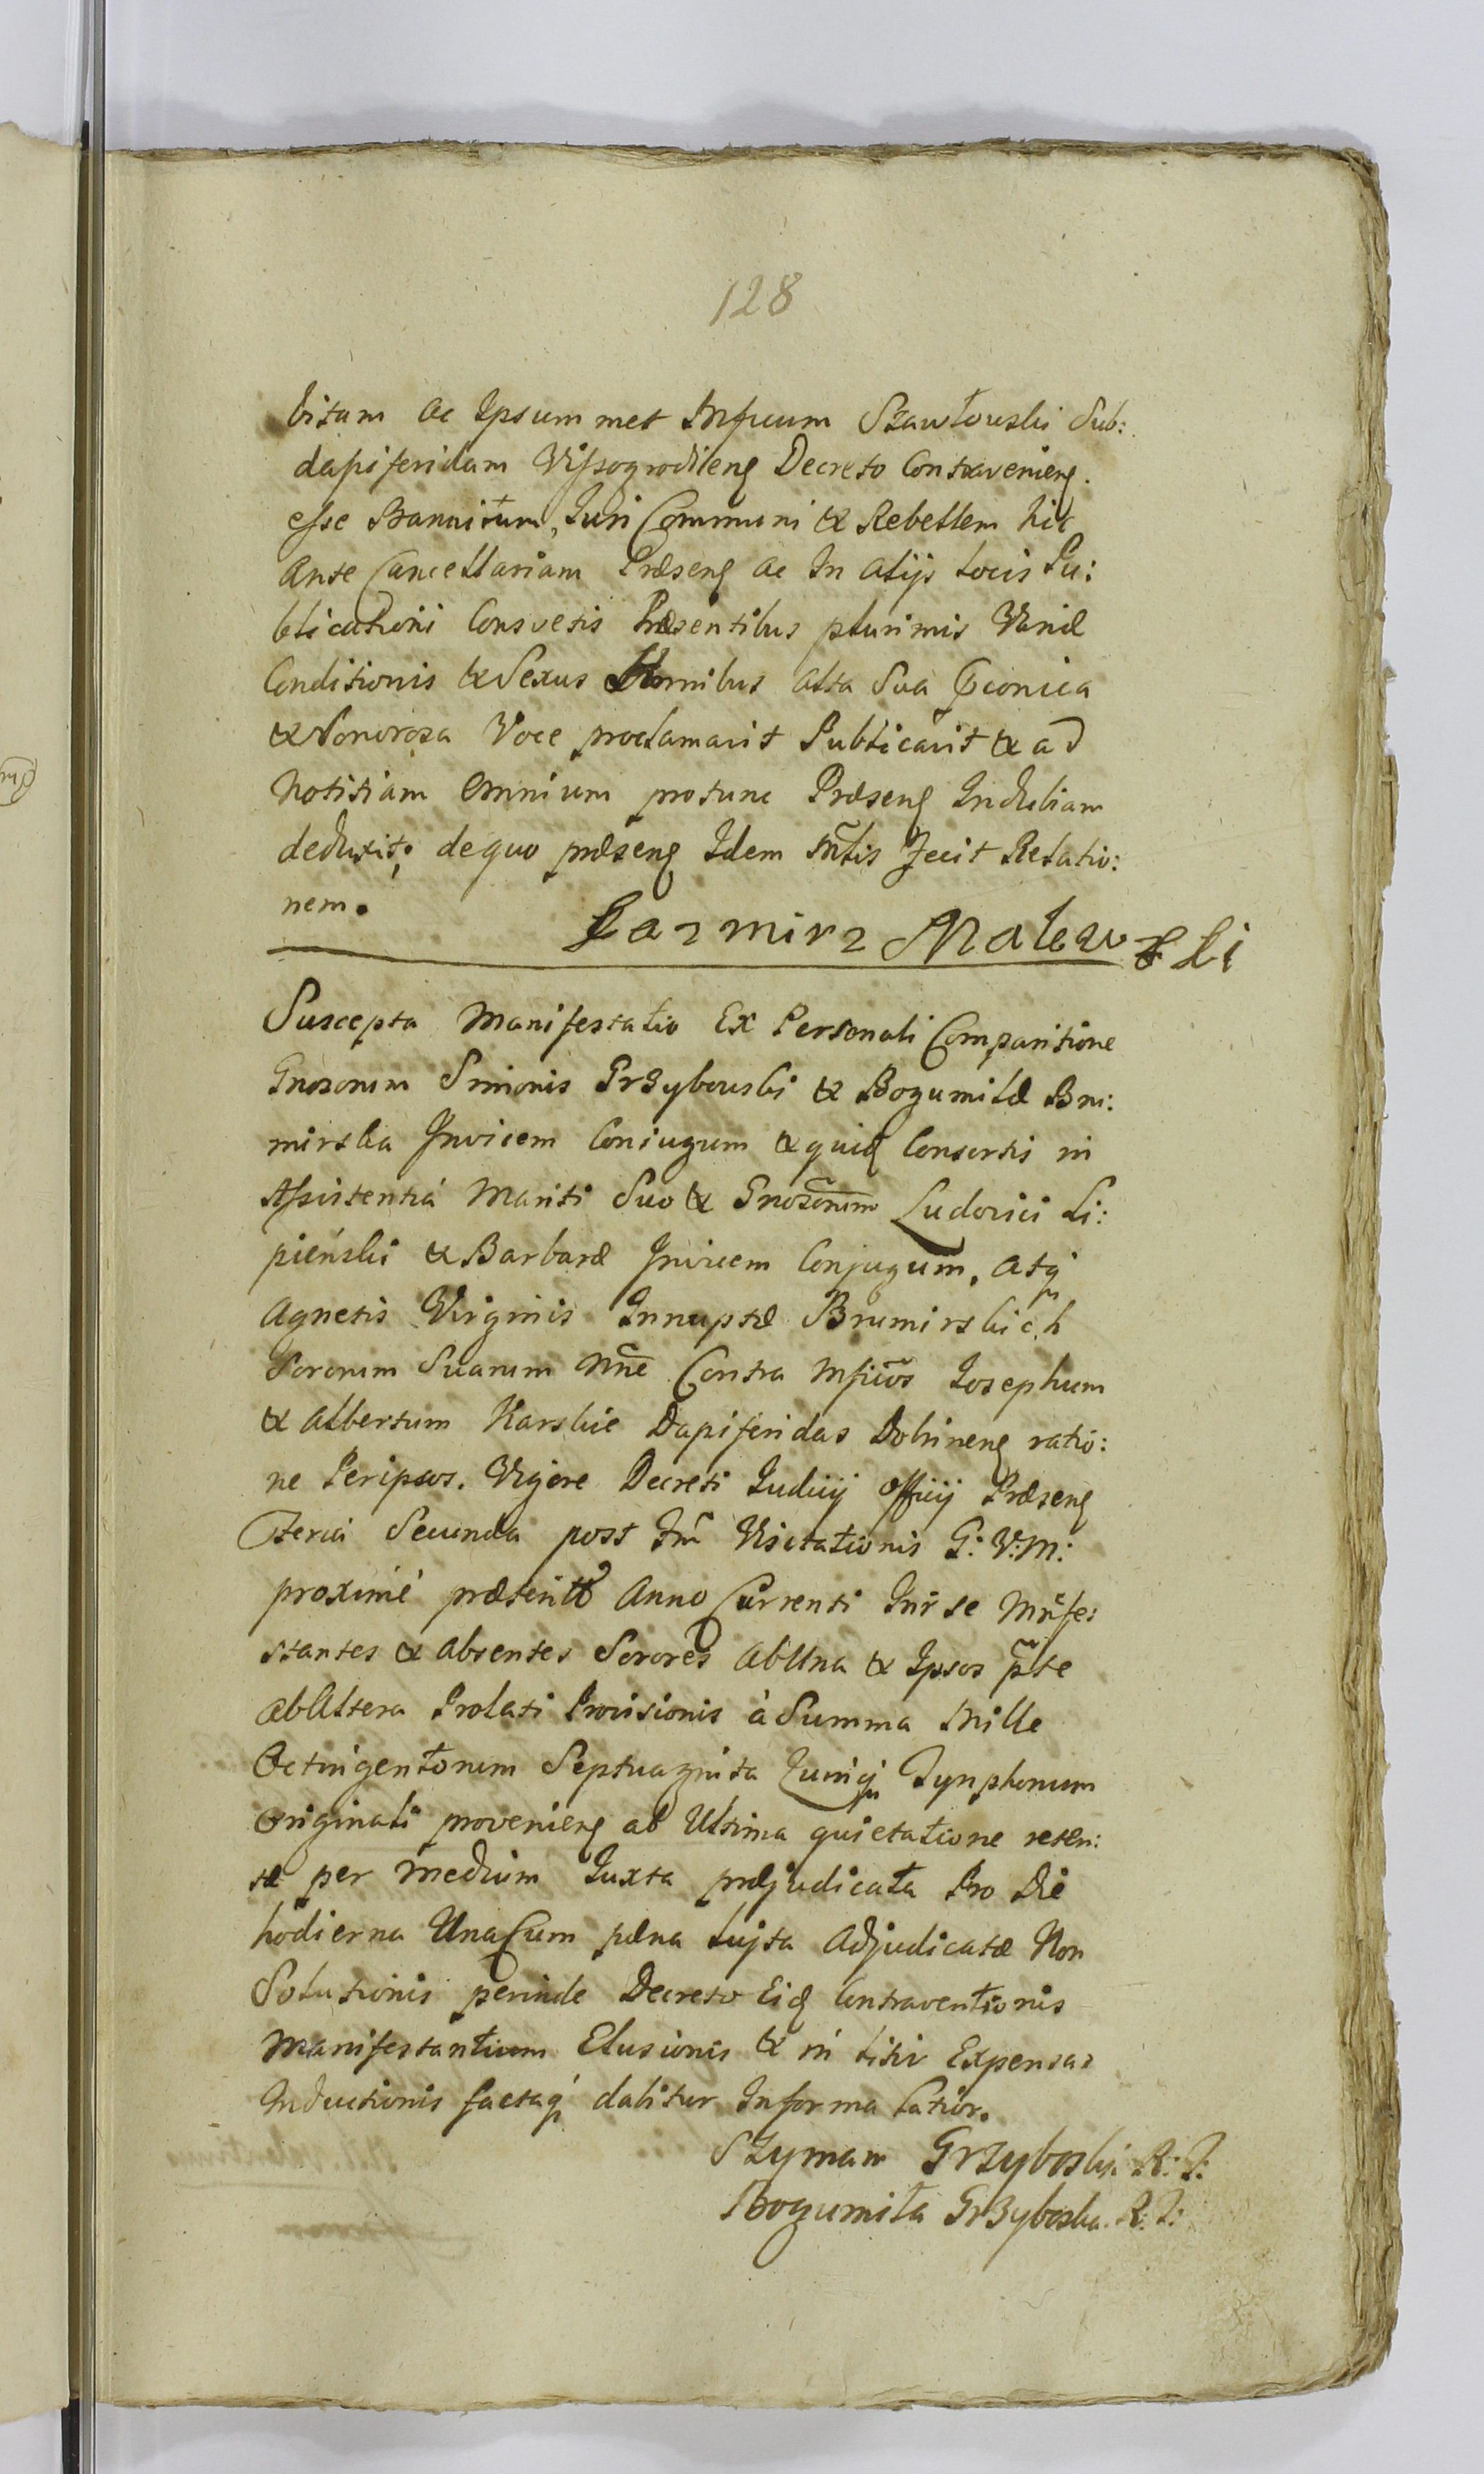 128
bitam ac Ipsummet Mficum Szawłouski Sub:
dapiferidam Vissogrodiens Decreto Contraveniens.
esse Bannitum, Juri Communi & Rebellem hic
Ante Cancellariam Præsens ac In alijs locis Pu:
blicationi Consvetis Præsentibus plurimis Variæ
Conditionis & Sexus Hominibus alta Sua
& Sonorosa Voce proclamavit Publicavit & ad
Notitiam Omnium protunc Præsens Indubiam
deduxit; de quo præsens Idem Mlis Fecit Relatio:
nem.
Kazmirz Malewski
Suscepta Manifestatio Ex Personali Comparitione
Gnosorum Simonis Grzybouski & Bogumilæ Bru:
mirska Invicem Conjugum & quid Consortis in
Assistentiá Mariti Suo & Gnosorum Ludovici Li:
pieński & Barbaræ Invicem Conjugum, atq
Agnetis Virginis Innuptæ Brumirskich
Sororum Suarum Nne Contra Mficos Josephum
& Albertum Karskie Dapiferidas Dobrinens ratio:
ne Peripsos. Vigore Decreti Judicij Officij Præsens
Feria Secunda post Ftm Visitationis G: V: M:
proximé præterito Anno Currenti Intr se Mnfe:
stantes & absentes Sorores ab Una & Ipsos pte
ab Altera Prolati Provisionis à Summa Mille
Octingentorum Septuaginta Quinq Tynphonum
Originali proveniens ab Ultima quietatione reten:
tæ per Medium Juxta præjudicata Pro Die
hodierna Una Cum pæna lujta Adjudicatæ Non
Solutionis perinde Decreto Eid Contraventionis
Manifestantium Elusionis & in litis Expensas
Inductionis factaq dabitur Informa latior.
Szyman Grzyboski R: J:
Bogumiła Grzyboska. R: J: